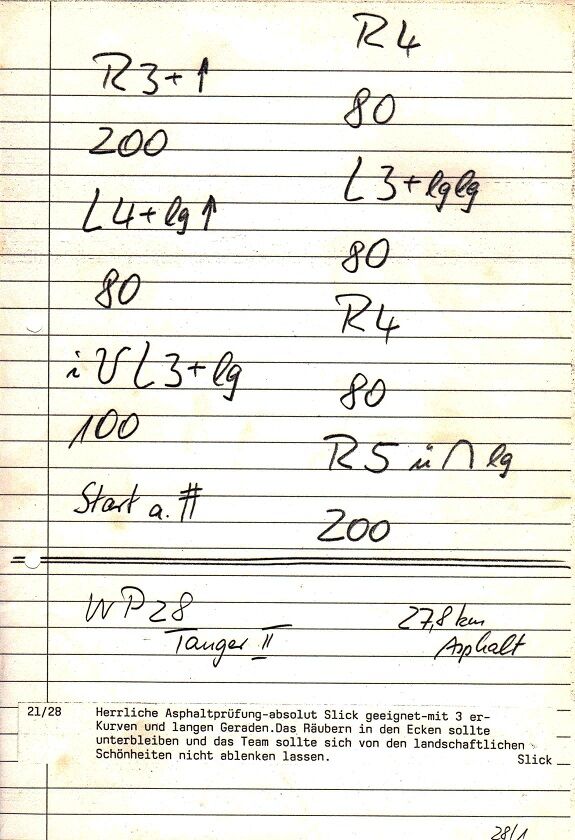 R 3 + ↑
200
L 4 + lg ↑
80
i V L 3 + lg
100
Start a. #
R 4
80
L 3 + lg lg
80
R 4
80
R 5 ü ∩ lg
200
WP 28
Tanger II
27,8 km
Asphalt
21/28 Herrliche Asphaltprüfung-absolut Slick geeignet-mit 3 er-
Kurven und langen Geraden.Das Räubern in den Ecken sollte
unterbleiben und das Team sollte sich von den landschaftlichen
Schönheiten nicht ablenken lassen. Slick
28/1